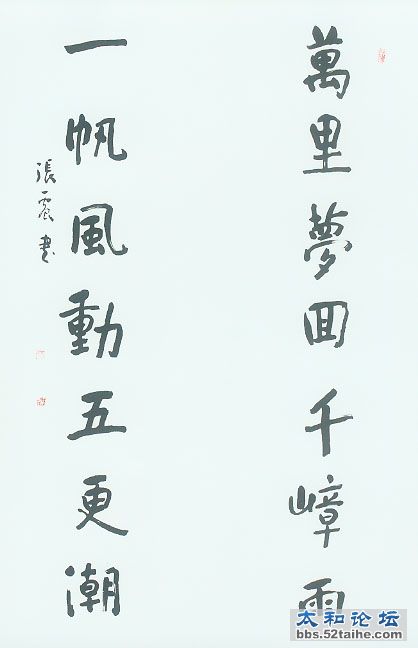 萬里夢回千嶂雨
一帆風動五更潮
張震書
太和论坛
bbs.52taihe.com